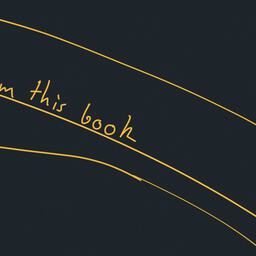 m this book